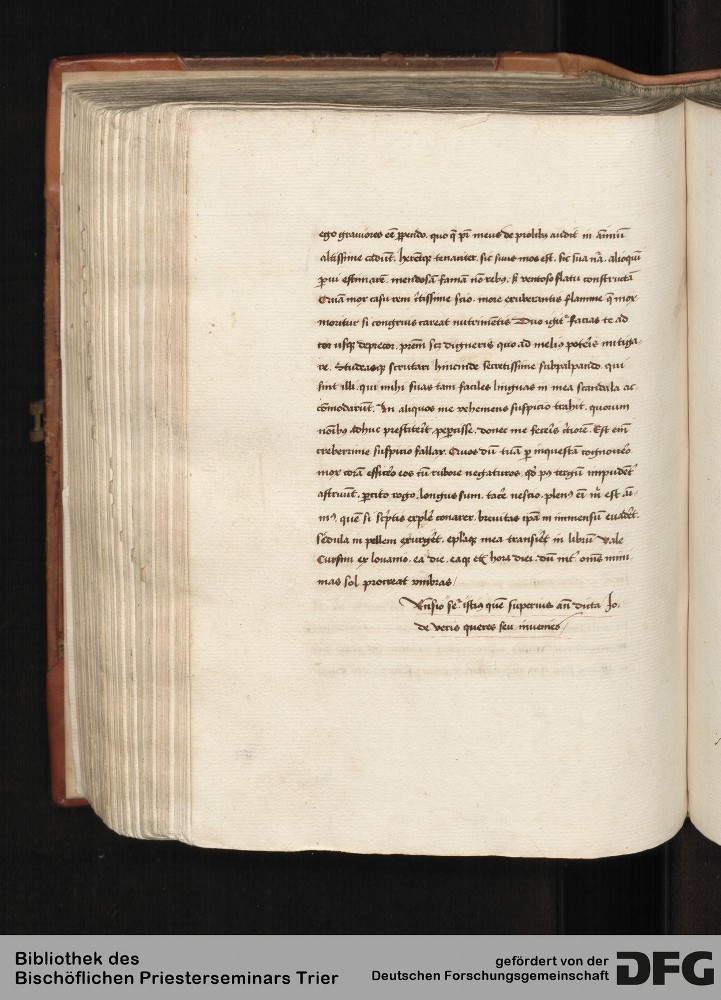 ego grauiores eē ꝑpendo. quo q̄ pr̄ meus de prolibꝰ audit in animū
altissime cadūt. herētqꝫ tenaciter. sic suus mos est. sic sua nā. alioqui
ꝑui estimarē. mendosā famā nō rebꝫ. sꝫ ventoso flatu constructā
Quā mox casurem c̄tissime scio. more exuberantis flamme q̄ mox
moritur si congruis careat nutrimētis Duo igit̄ facias te ad
usqꝫ deprecor. prēm scꝫ digneris quo ad meliꝰ poteris mitiga
re. Studeasqꝫ scrutari hincinde secretissime subpalpando. qui
sint illi. qui mihi suas tam faciles linguas in mea scandala ac
cōmodarūt. In aliquos me vehemens suspicio trahit. quorum
noībꝰ adhuc prestiterit peꝑcisse. donec me feceris c̄tiorē. Est em̄
creberrime suspicio fallax. Quos dū tuā ꝑ inquestam cognouero
mox corā efficiēo eos tū rubore negaturos. qd̄ pꝰ tergū impudēt̄
astruūt. ꝑcito rogo. longus sum. tacē nescio. plenꝰ em̄ m̄ est ai
mꝰ. quē si sc̄ptis explē conarer. breuitas ip̄a in immensū euadet̄.
scedula in pellem exurget̄. ep̄laqꝫ mea transiet̄ in librū Vale
Cursim ex louanio. ea die. eaqꝫ etc̄ hora diei. dū int̄ om̄s mini
mas sol procreat vmbras /
Rn̄sio istiꝰ quē superius an̄ dicta Jo.
de veris queres seu inuenies /
Bibliothek des
Bischöflichen Priesterseminars Trier
gefördert von der
Deutschen Forschungsgemeinschaft
DFG